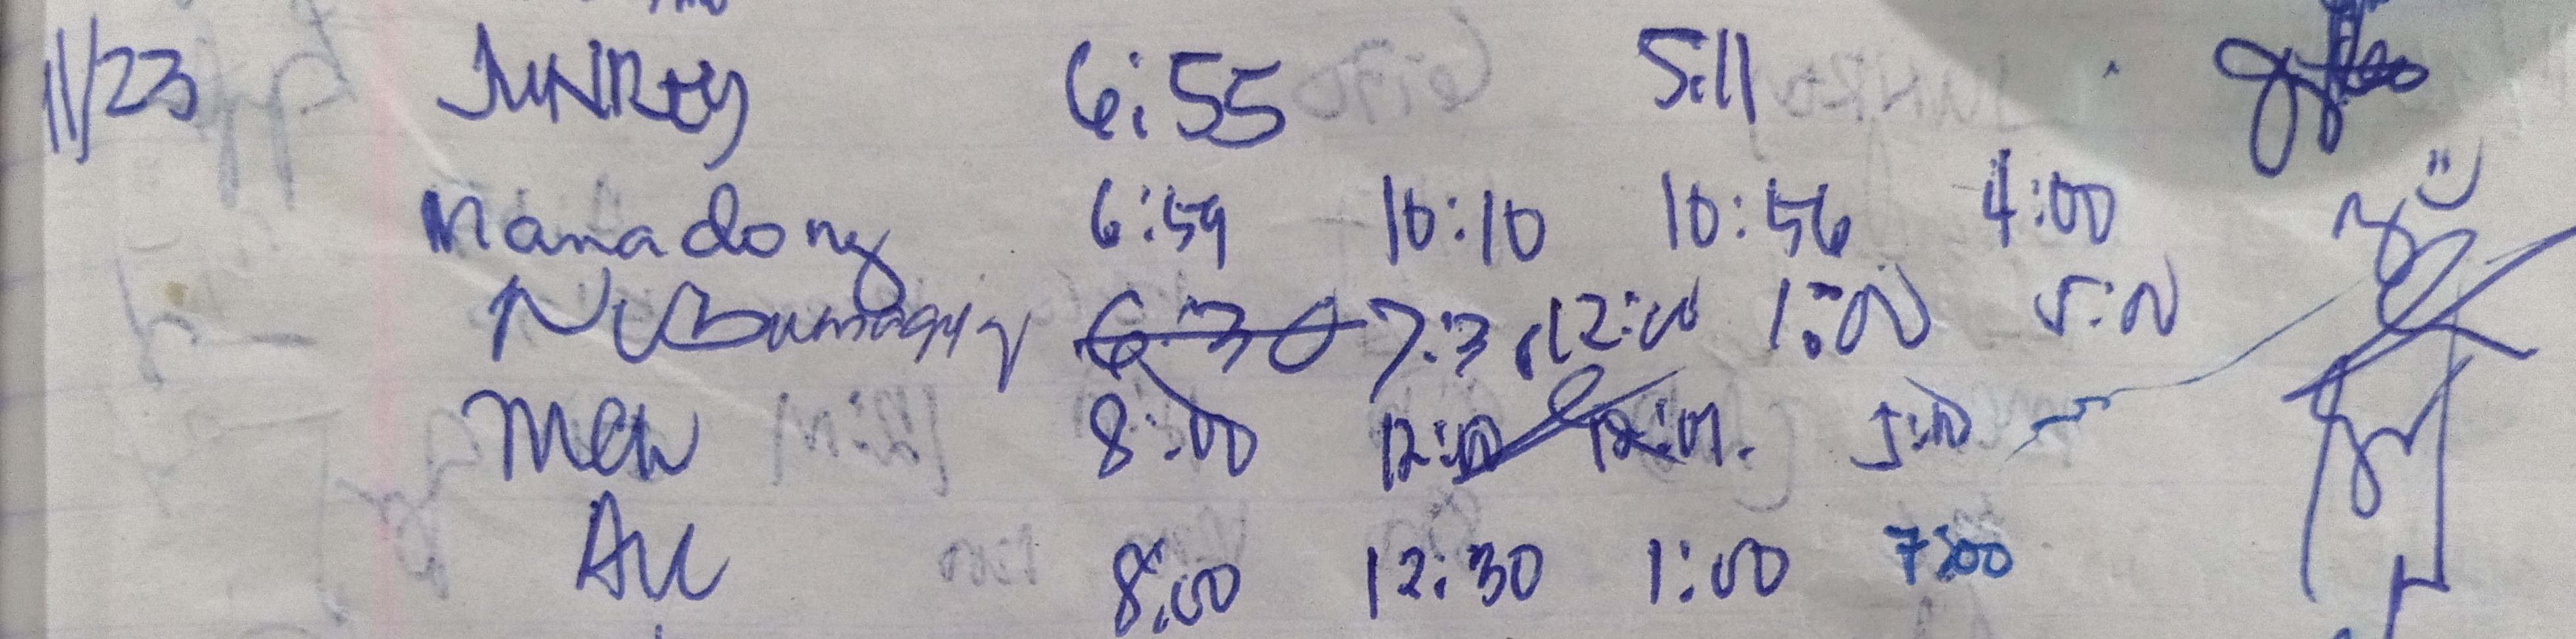 11/23 JUNREY 6:55 5:11
Manadong 6:59 10:10 10:56 4:00
6:30 7:3 12:00 1:00 5:00
Mew 8:00 12:00 12:01. 5:00
8:00 12:30 1:00 7:00